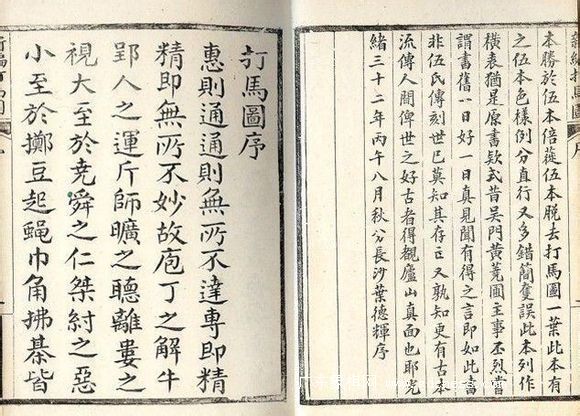 新編打馬圖 序
本勝於伍本倍蓰伍本脫去打馬圖一葉此本有
之伍本色樣例分直行又多錯簡奪誤此本列作
橫表猶是原書欵式昔吳門黃蕘圃主事丕烈嘗
謂書舊一日好一日真見聞有得之言即如此書
非伍氏傳刻世已莫知其存亡又孰知更有古本
流傳人間俾世之好古者得覩廬山真面也耶光
緒三十二年丙午八月秋分長沙葉德輝序
打馬圖序
惠則通通則無所不達專即精
精即無所不妙故庖丁之解牛
郢人之運斤師曠之聰離婁之
視大至於堯舜之仁桀紂之惡
小至於擲豆起蠅巾角拂棊皆